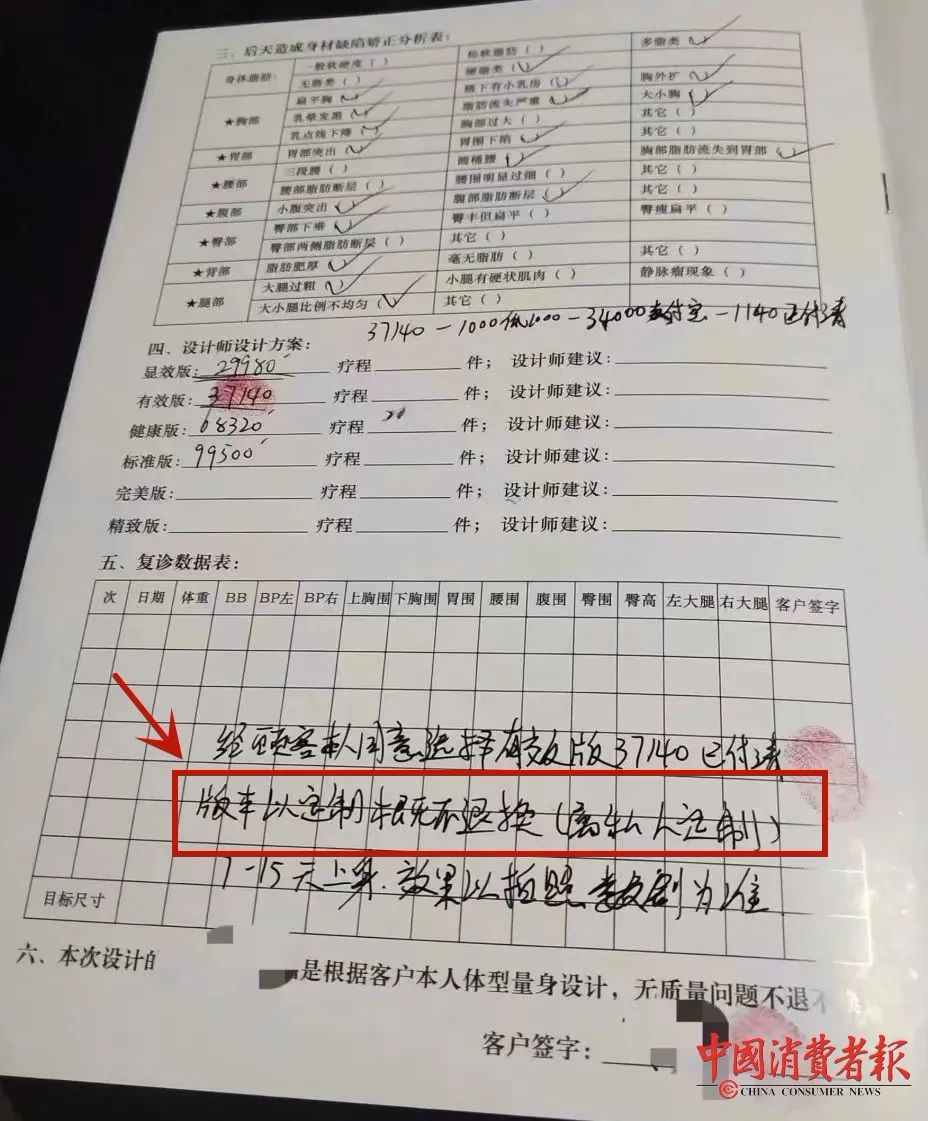 三、后天造成身材缺陷矫正分析表:
身体脂肪: 一般软硬度( ) 松软脂肪( ) 多脂类(✓)
无脂类( ) 硬脂类(✓)
★胸部 扁平胸(✓) 腋下有小乳房(✓) 胸外扩(✓)
乳晕发黑(✓) 脂肪流失严重(✓) 大小胸(✓)
乳点线下降(✓) 胸部过大( ) 其它( )
★胃部 胃部突出(✓) 胃围下陷(✓) 其它( )
★腰部 三段腰( ) 圆桶腰(✓) 胸部脂肪流失到胃部(✓)
腰部脂肪断层( ) 腰围明显过细( ) 其它( )
★腹部 小腹突出(✓) 腹部脂肪断层(✓) 其它( )
★臀部 臀部下垂(✓) 臀丰但扁平( ) 臀瘦扁平( )
臀部两侧脂肪断层( ) 其它( )
★背部 脂肪肥厚(✓) 毫无脂肪( ) 其它( )
★腿部 大腿过粗(✓) 小腿有硬状肌肉( ) 静脉瘤现象( )
大小腿比例不均匀(✓) 其它( )
37140-1000 1000-34000支付宝-1140已付清
四、设计师设计方案:
显效版: 29980 疗程 件; 设计师建议:
有效版: 37140 疗程 件; 设计师建议:
健康版: 68320 疗程 件; 设计师建议:
标准版: 99500 疗程 件; 设计师建议:
完美版: 疗程 件; 设计师建议:
精致版: 疗程 件; 设计师建议:
五、复诊数据表:
次 日期 体重 BB BP左 BP右 上胸围 下胸围 胃围 腰围 腹围 臀围 臀高 左大腿 右大腿 客户签字
经顾客本人同意选择有效版37140已付清
版本以定制概不退换(属私人定制)
7-15天上身.效果以拍照数据为准
目标尺寸
六、本次设计的
是根据客户本人体型量身设计,无质量问题不退不
客户签字:
中國消費者報
CHINA CONSUMER NEWS